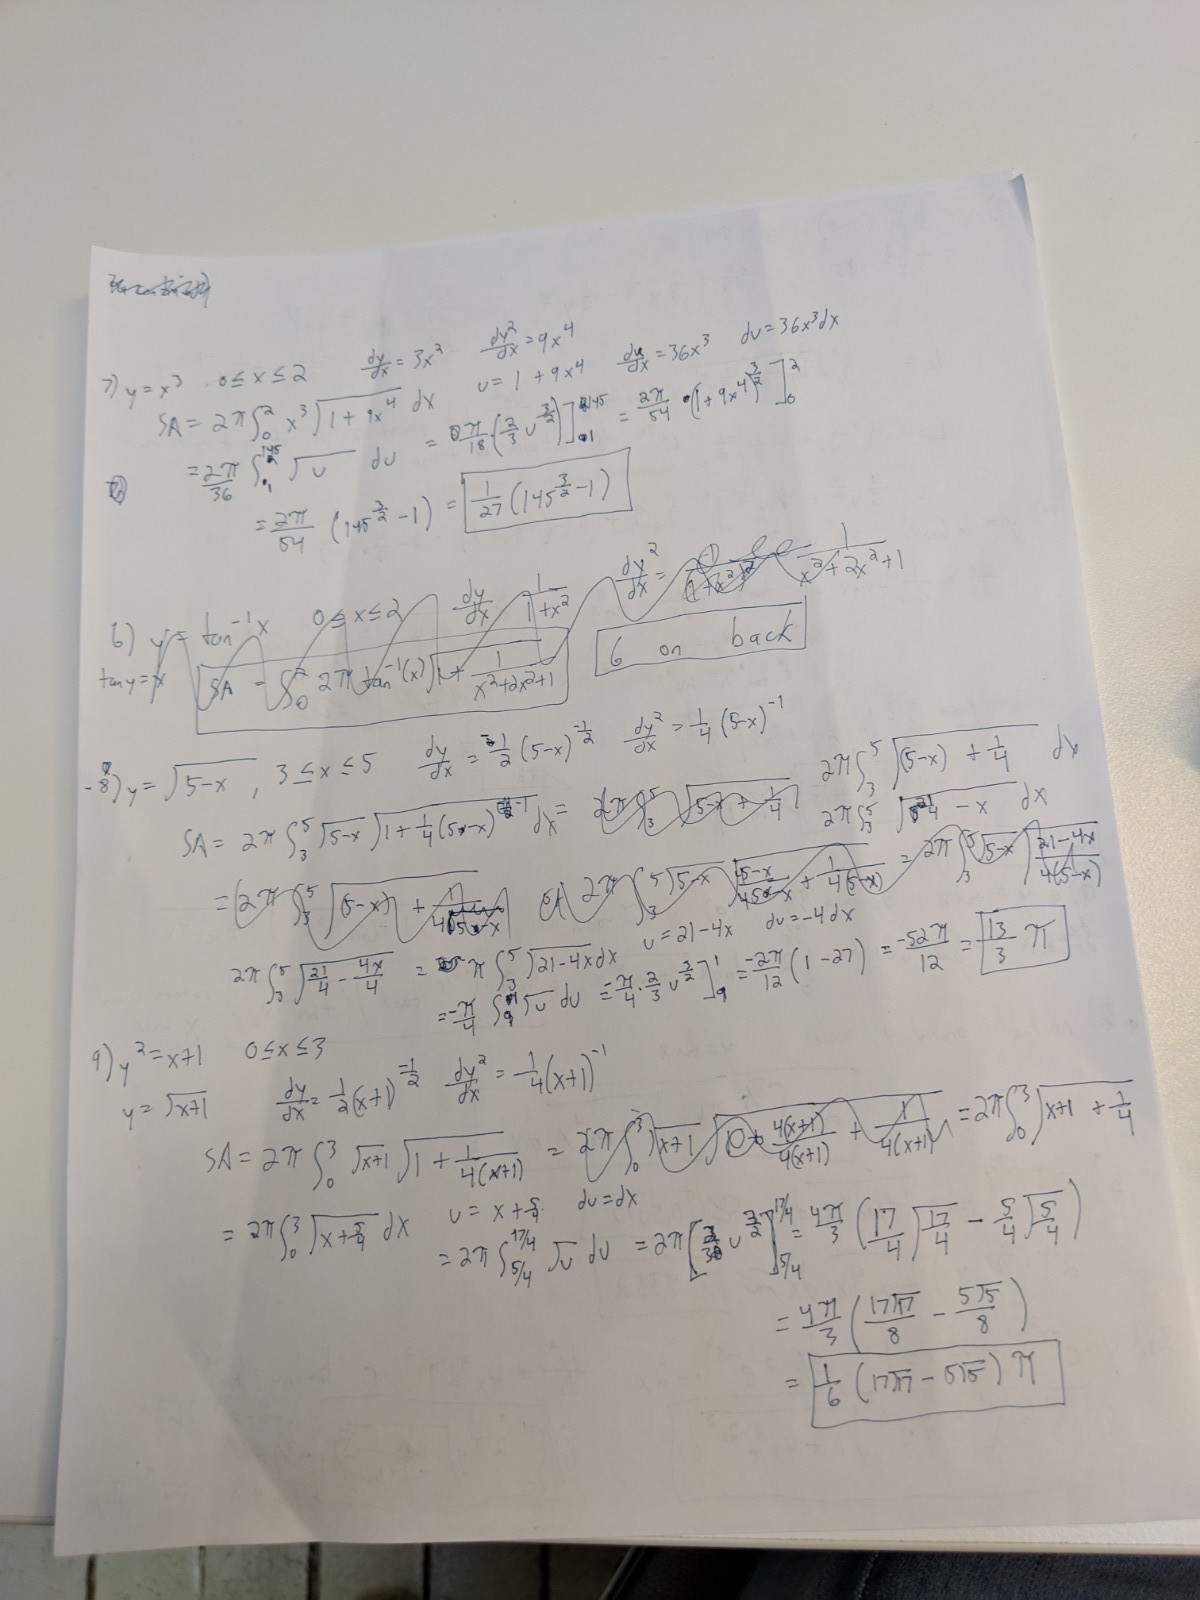 7) y = x³   0 ≤ x ≤ 2   dy/dx = 3x²   dy²/dx = 9x⁴
u = 1 + 9x⁴   du/dx = 36x³   du = 36x³dx
SA = 2π ∫₀² x³ √(1 + 9x⁴) dx
= 2π/36 ∫₁¹⁴⁵ √u du = π/18 · (2/3 u^(3/2)) ]₁¹⁴⁵ = 2π/54 · (1+9x⁴)^(3/2) ]₀²
= 2π/54 (145^(3/2) − 1) = 1/27 (145^(3/2) − 1)
6) y = tan⁻¹x   0 ≤ x ≤ 2   dy/dx   1/(1+x²)   dy²/dx = 1/(x²+2x²+1)
tan y = x   SA = ∫₀² 2π tan⁻¹(x) √(1 + 1/(x²+2x²+1))   6 on back
8) y = √(5−x) , 3 ≤ x ≤ 5   dy/dx = −1/2 (5−x)^(−1/2)   dy²/dx = 1/4 (5−x)⁻¹
SA = 2π ∫₃⁵ √(5−x) √(1 + 1/4 (5−x)⁻¹) dx = 2π ∫₃⁵ √(5−x + 1/4)   2π ∫₃⁵ √((5−x) + 1/4) dx
2π ∫₃⁵ √(21/4 − x) dx
= 2π ∫₃⁵ √(5−x) √((21−4x)/(4(5−x)))
u = 21−4x   du = −4dx
2π ∫₃⁵ √(21/4 − 4x/4) = π ∫₃⁵ √(21−4x) dx
= −π/4 ∫₉¹ √u du = −π/4 · 2/3 u^(3/2) ]₉¹ = −2π/12 (1−27) = −52π/12 = 13/3 π
9) y² = x+1   0 ≤ x ≤ 3
y = √(x+1)   dy/dx = 1/2 (x+1)^(−1/2)   dy²/dx = 1/4 (x+1)⁻¹
SA = 2π ∫₀³ √(x+1) √(1 + 1/(4(x+1))) = 2π ∫₀³ √(x+1) √(4(x+1)/(4(x+1)) + 1/(4(x+1))) = 2π ∫₀³ √(x+1 + 1/4)
= 2π ∫₀³ √(x + 5/4) dx   u = x + 5/4   du = dx
= 2π ∫_(5/4)^(17/4) √u du = 2π [2/3 u^(3/2)]_(5/4)^(17/4) = 4π/3 (17/4 √(17/4) − 5/4 √(5/4))
= 4π/3 (17√17/8 − 5√5/8)
= 1/6 (17√17 − 5√5) π